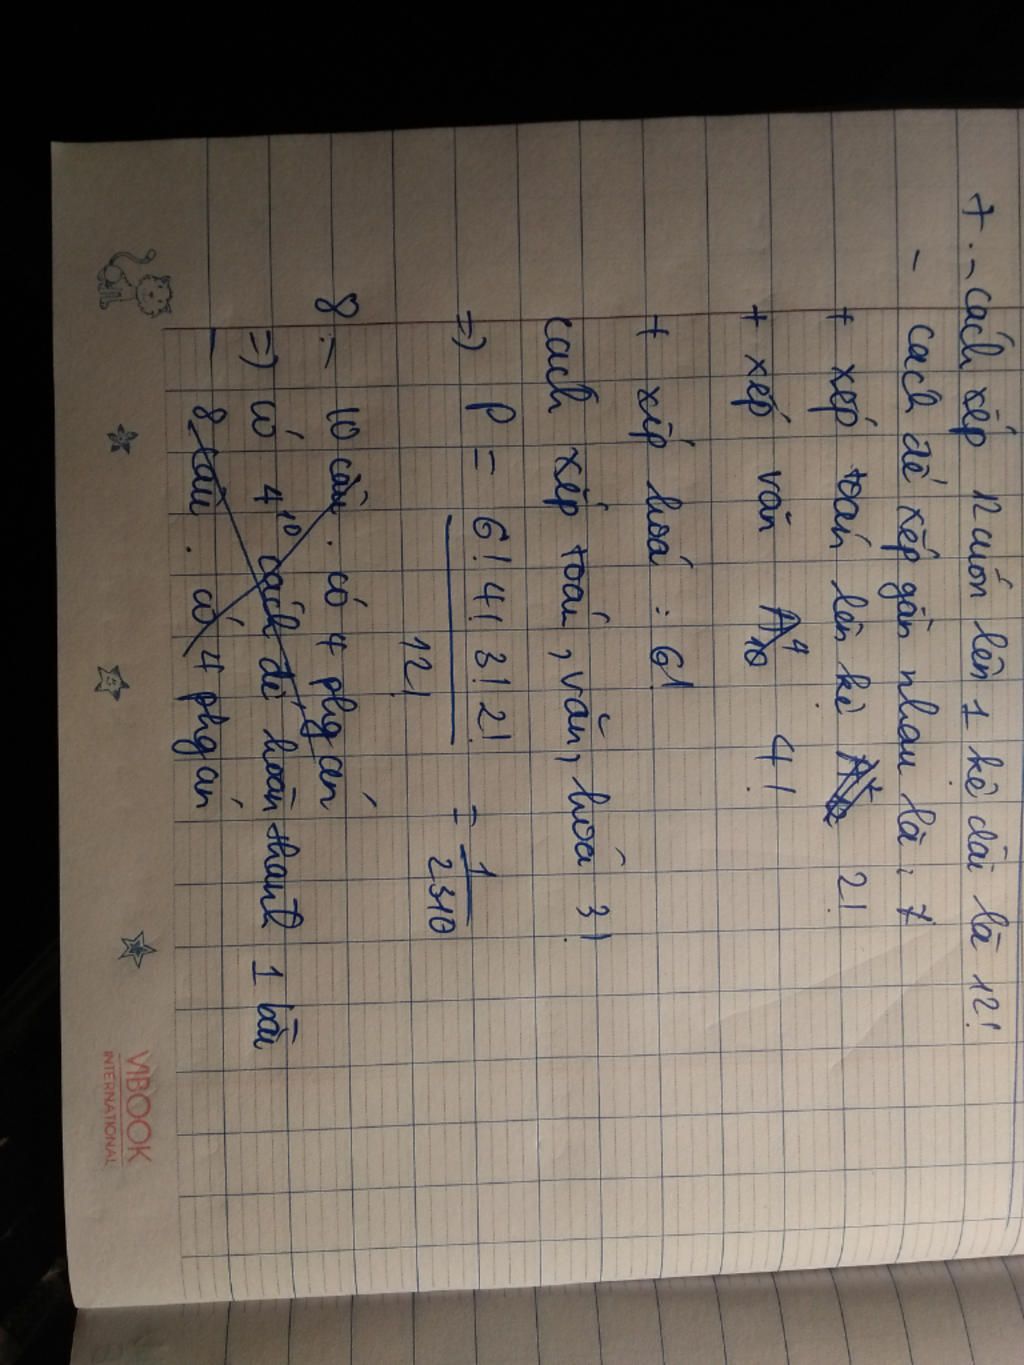 7. - cách xếp 12 cuốn lên 1 kệ dài là 12!
- cách để xếp gần nhau là: 7
+ xếp toán lên kệ 2!
+ xếp văn 4!
+ xếp hoá : 6!
cách xếp toán, văn, hoá 3!
=> P = 6! 4! 3! 2! / 12! = 1 / 2310
8 - 10 câu. có 4 phg án
=> có 4^10 cách để hoàn thành 1 bài
- 8 câu. có 4 phg án
VIBOOK
INTERNATIONAL